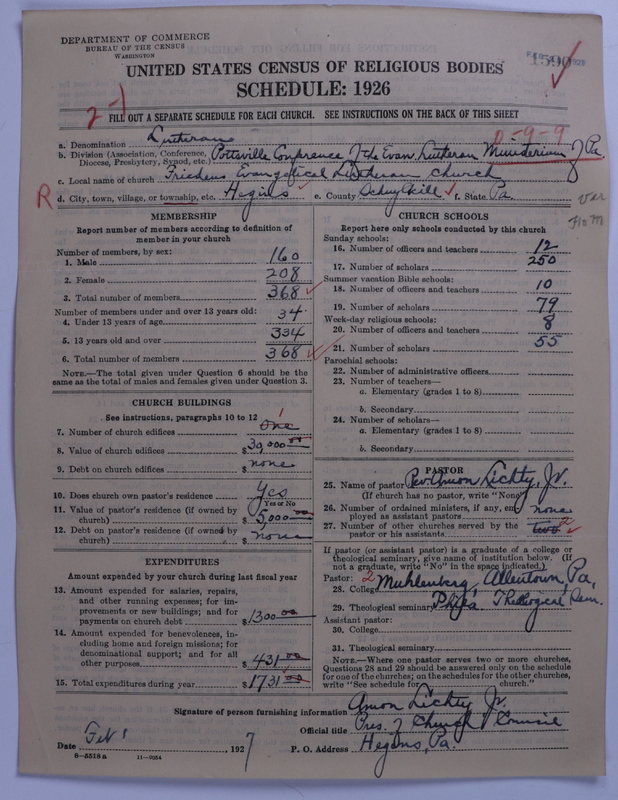 DEPARTMENT OF COMMERCE
BUREAU OF THE CENSUS
WASHINGTON
1590
UNITED STATES CENSUS OF RELIGIOUS BODIES
SCHEDULE: 1926
2-1
FILL OUT A SEPARATE SCHEDULE FOR EACH CHURCH. SEE INSTRUCTIONS ON THE BACK OF THIS SHEET
0-9-9
a. Denomination Lutheran
b. Division (Association, Conference, Diocese, Presbytery, Synod, etc.) Pottsville Conference of the Evan. Lutheran Ministerium of Pa.
c. Local name of church Friedens Evangelical Lutheran Church
R d. City, town, village, or township, etc. Hegins e. County Schuylkill f. State Pa.
MEMBERSHIP
Report number of members according to definition of
member in your church
Number of members, by sex:
1. Male 160
2. Female 208
3. Total number of members 368
Number of members under and over 13 years old:
4. Under 13 years of age 34
5. 13 years old and over 334
6. Total number of members 368
NOTE.—The total given under Question 6 should be
same as the total of males and females given under Question 3.
CHURCH BUILDINGS
See instructions, paragraphs 10 to 12
7. Number of church edifices One 1
8. Value of church edifices $30,000.00
9. Debt on church edifices $none
10. Does church own pastor's residence Yes
Yes or No
11. Value of pastor's residence (if owned by
church) $5,000.00
12. Debt on pastor's residence (if owned by
church) $none
EXPENDITURES
Amount expended by your church during last fiscal year
13. Amount expended for salaries, repairs,
and other running expenses; for im-
provements or new buildings; and for
payments on church debt $1300.00
14. Amount expended for benevolences, in-
cluding home and foreign missions; for
denominational support; and for all
other purposes $431.00
15. Total expenditures during year $1731.00
CHURCH SCHOOLS
Report here only schools conducted by this church
Sunday schools:
16. Number of officers and teachers 12
17. Number of scholars 250
Summer vacation Bible schools:
18. Number of officers and teachers 10
19. Number of scholars 79
Week-day religious schools:
20. Number of officers and teachers 8
21. Number of scholars 55
Parochial schools:
22. Number of administrative officers
23. Number of teachers—
a. Elementary (grades 1 to 8)
b. Secondary
24. Number of scholars—
a. Elementary (grades 1 to 8)
b. Secondary
PASTOR
25. Name of pastor Rev. Amon Lichty, Jr.
(If church has no pastor, write "None")
26. Number of ordained ministers, if any, em-
ployed as assistant pastors none
27. Number of other churches served by the
pastor or his assistants two 2
If pastor (or assistant pastor) is a graduate of a college or
theological seminary, give name of institution below. (If
not a graduate, write "No" in the space indicated.)
Pastor: 2
28. College Muhlenberg, Allentown, Pa.
29. Theological seminary Phila Theological Sem.
Assistant pastor:
30. College
31. Theological seminary
NOTE.—Where one pastor serves two or more churches,
Questions 28 and 29 should be answered only on the schedule
for one of the churches; on the schedules for the other churches,
write "See schedule for church."
Signature of person furnishing information Amon Lichty Jr.
Official title Pres. of Church Council
Date Feb 1, 1927 P. O. Address Hegins, Pa.
8-5518a 11-9054